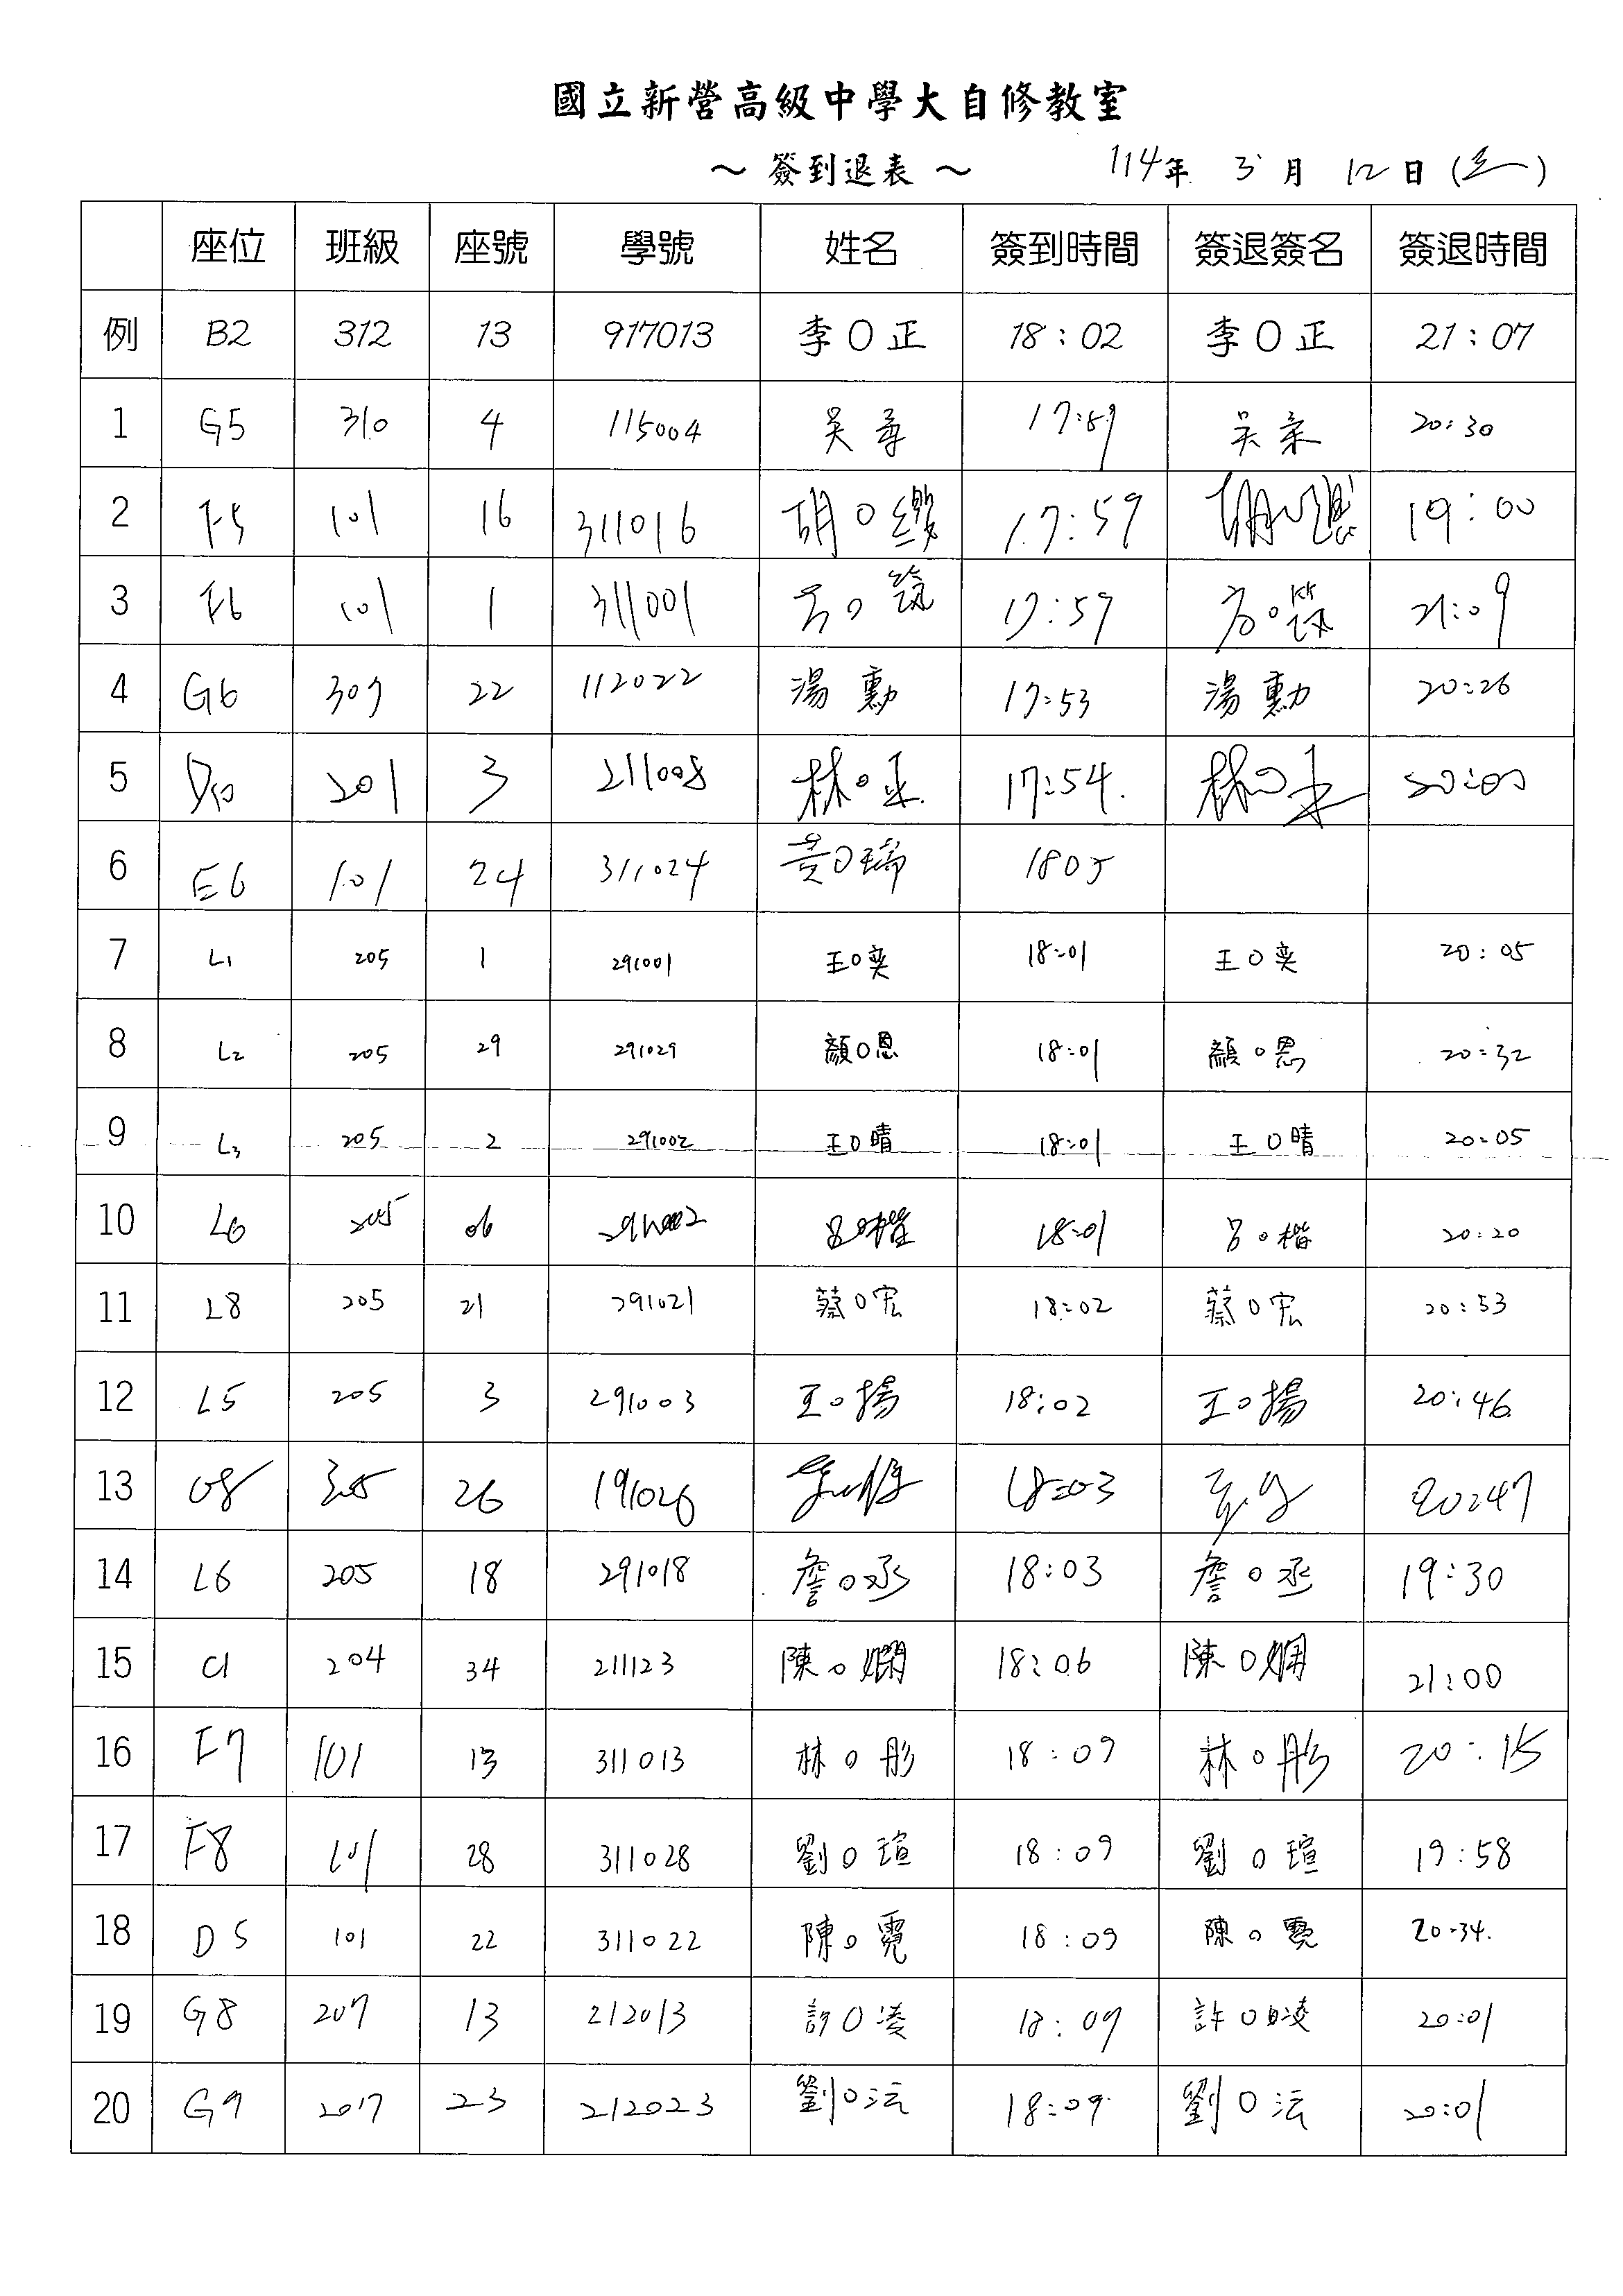 國立新營高級中學大自修教室
～ 簽到退表 ～ 114年 3月 12日 (三)
座位 班級 座號 學號 姓名 簽到時間 簽退簽名 簽退時間
例 B2 312 13 917013 李O正 18:02 李O正 21:07
1 G5 310 4 115004 吳 17:59 吳 20:30
2 F5 101 16 311016 胡O 17:59 胡O 19:00
3 F6 101 1 311001 方O筑 17:57 方O筑 21:09
4 G6 307 22 112022 湯 勳 17:53 湯 勳 20:26
5 D10 201 3 211008 林O 17:54 林O 20:00
6 E6 101 24 311024 黃O瑞 1805
7 L1 205 1 291001 王O奕 18:01 王O奕 20:05
8 L2 205 29 291029 顏O恩 18:01 顏O恩 20:32
9 L3 205 2 291002 王O晴 18:01 王O晴 20:05
10 L6 205 06 呂O楷 18:01 呂O楷 20:20
11 L8 205 21 291021 蔡O宏 18:02 蔡O宏 20:53
12 L5 205 3 291003 王O揚 18:02 王O揚 20:46
13 305 26 191026 18:03 20:47
14 L6 205 18 291018 詹O丞 18:03 詹O丞 19:30
15 C1 204 34 211123 陳O嫻 18:06 陳O嫻 21:00
16 F7 101 13 311013 林O彤 18:09 林O彤 20:15
17 F8 101 28 311028 劉O瑄 18:09 劉O瑄 19:58
18 D5 101 22 311022 陳O霓 18:09 陳O霓 20:34
19 G8 207 13 212013 許O 18:09 許O 20:01
20 G9 207 23 212023 劉O沄 18:09 劉O沄 20:01